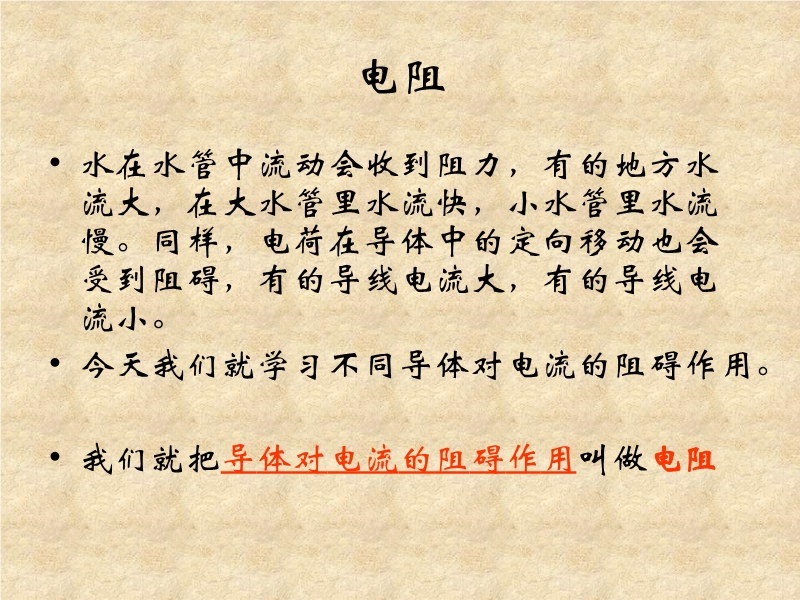 电阻
• 水在水管中流动会收到阻力，有的地方水
流大，在大水管里水流快，小水管里水流
慢。同样，电荷在导体中的定向移动也会
受到阻碍，有的导线电流大，有的导线电
流小。
• 今天我们就学习不同导体对电流的阻碍作用。
• 我们就把导体对电流的阻碍作用叫做电阻